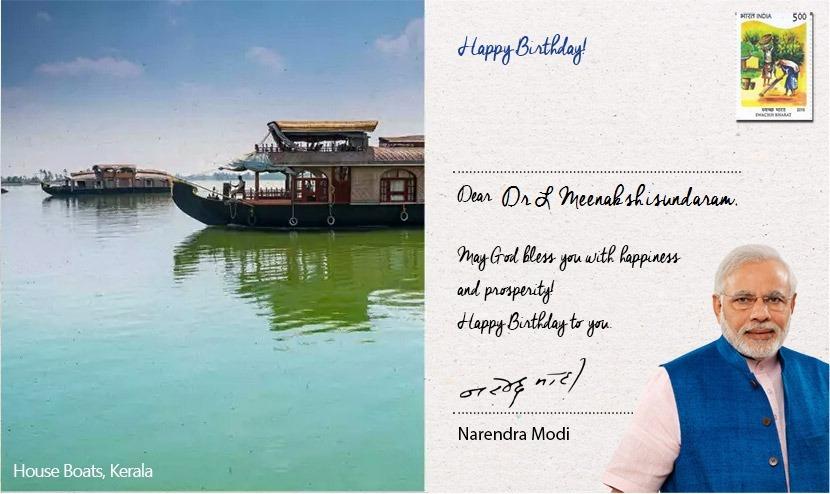 Happy Birthday!
भारत INDIA 500
स्वच्छ भारत 2015
SWACHH BHARAT
Dear Dr L Meenakshisundaram.
May God bless you with happiness
and prosperity!
Happy Birthday to you.
नरेन्द्र मोदी
Narendra Modi
House Boats, Kerala